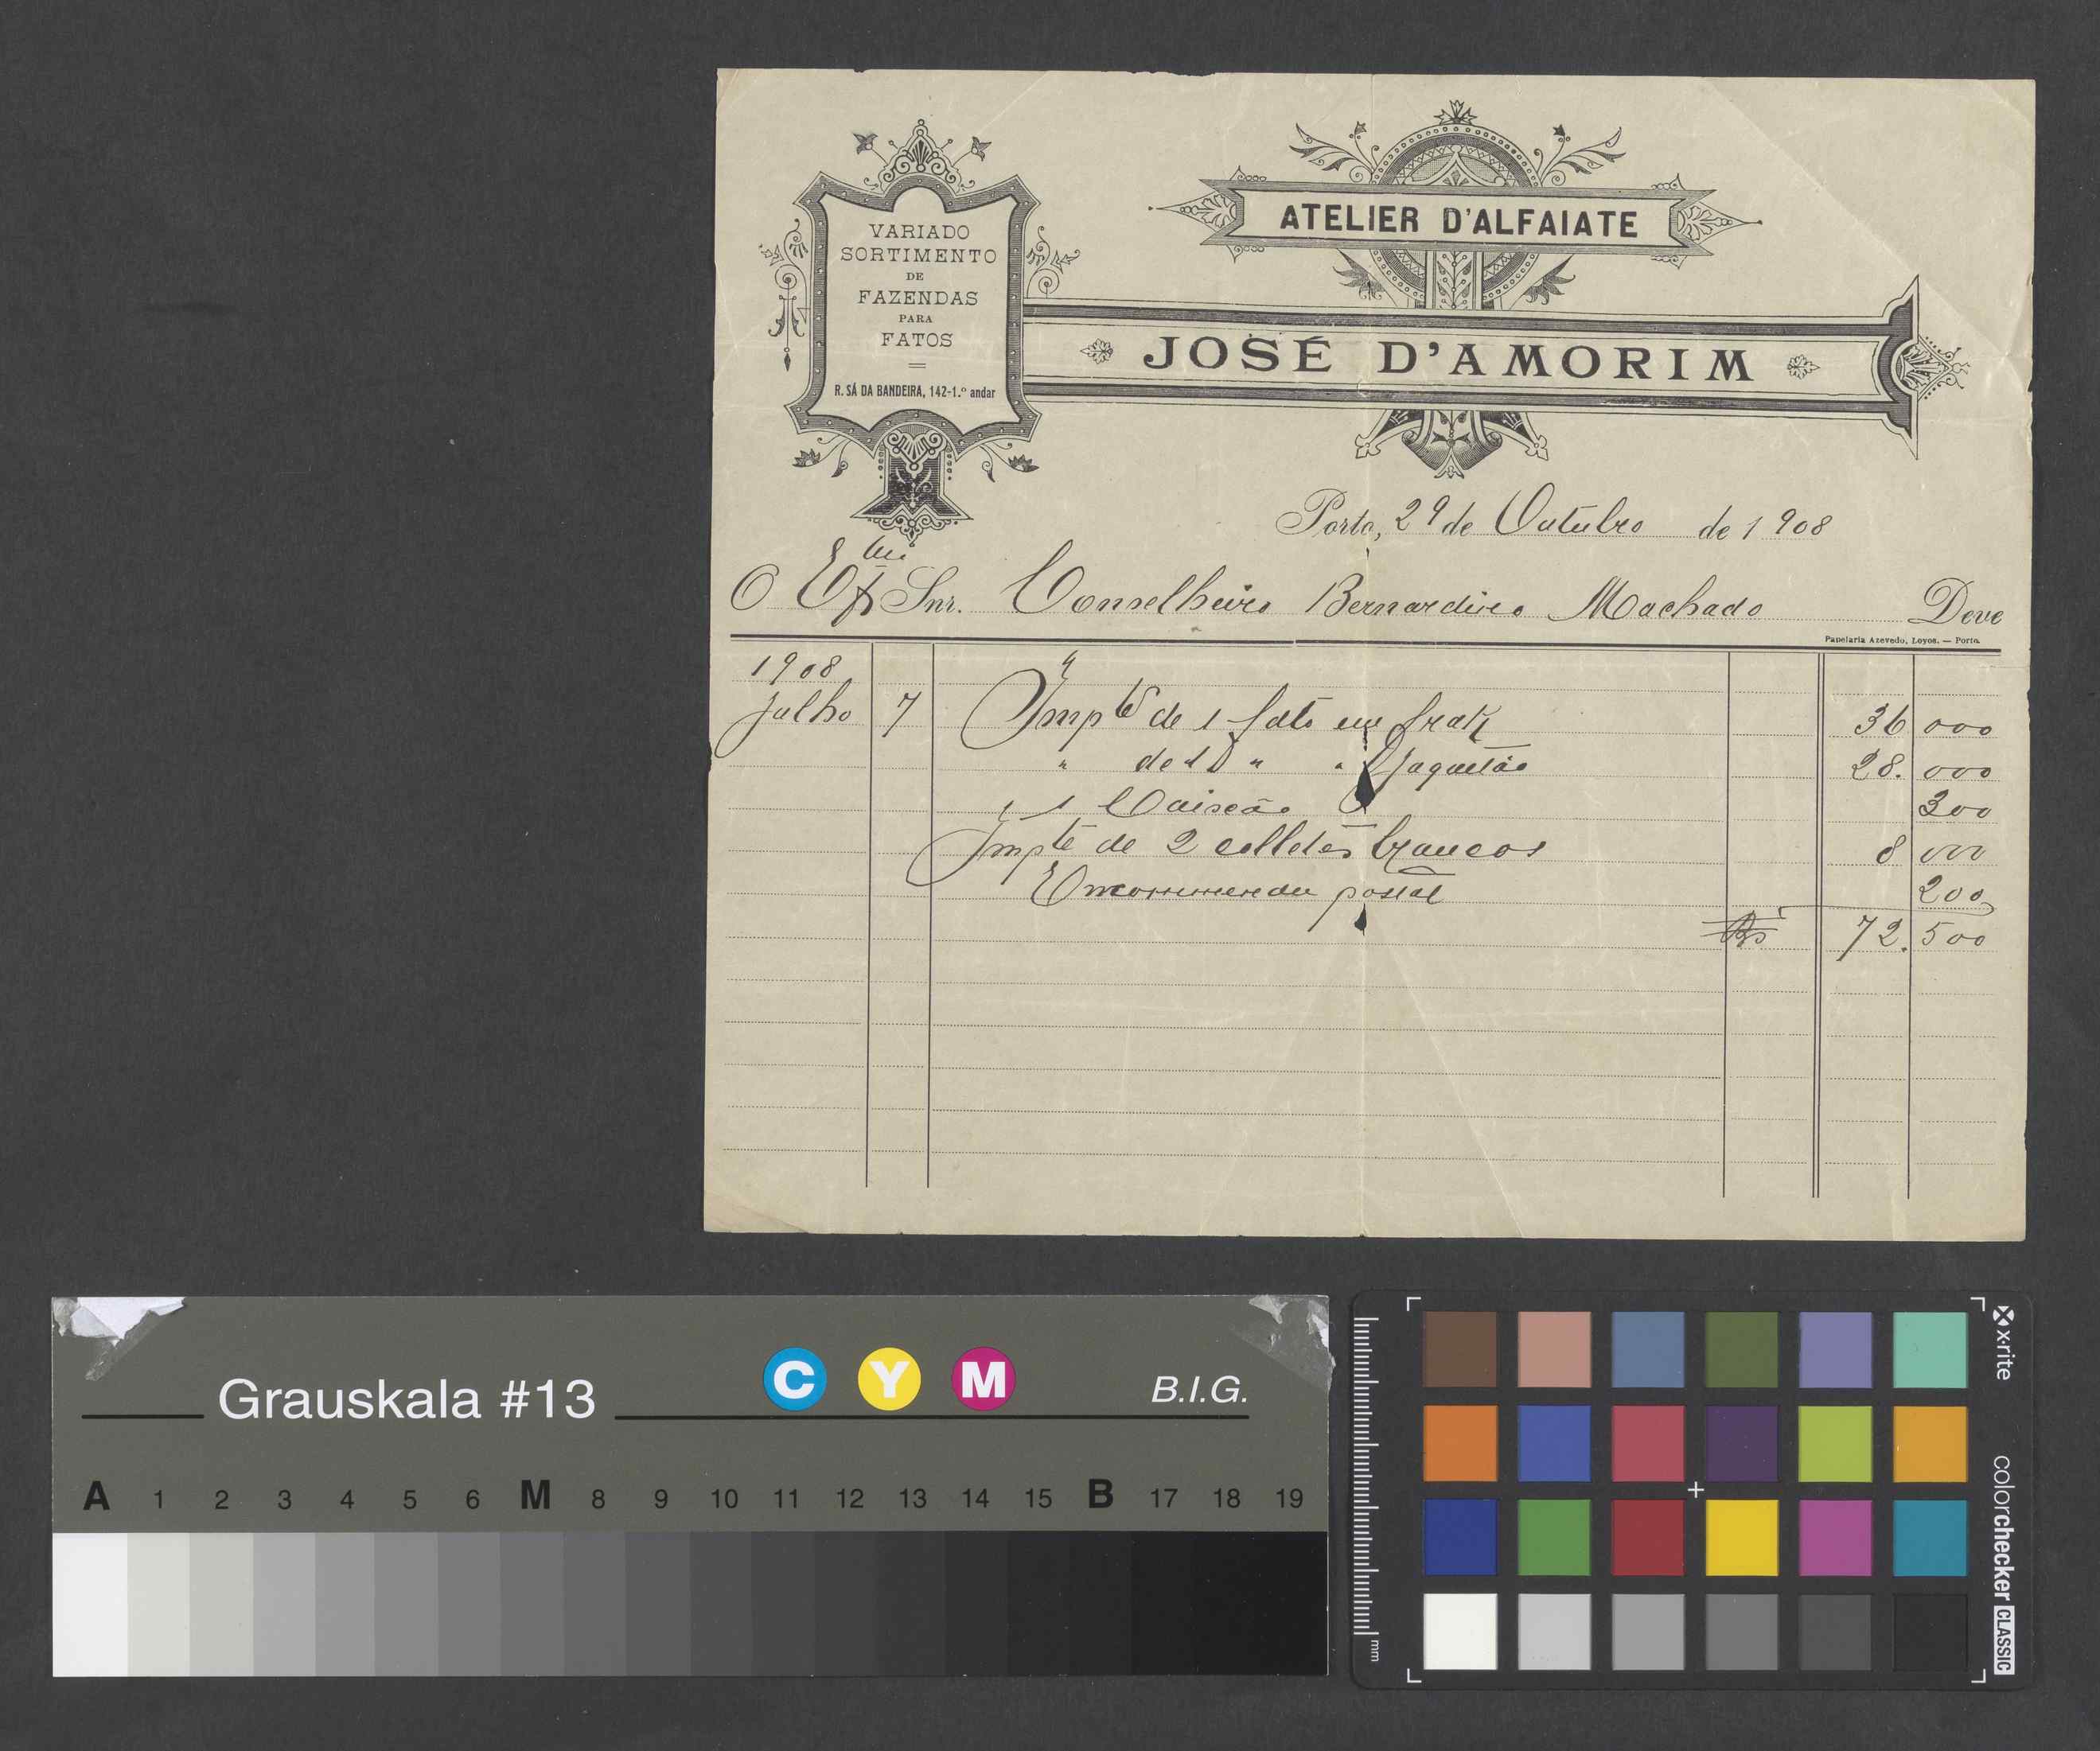 VARIADO
SORTIMENTO
DE
FAZENDAS
PARA
FATOS
R. SÁ DA BANDEIRA, 142-1.º andar
ATELIER D'ALFAIATE
JOSÉ D'AMORIM
Porto, 29 de Outubro de 1908
O Exmo Snr. Conselheiro Bernardino Machado Deve
Papelaria Azevedo, Loyos. — Porto.
1908
Julho 7 Impte de 1 fato em frak 36 000
" de 1 D " " Jaquetão 28. 000
1 Caixão 300
Impte de 2 colletes brancos 8 000
Encommenda postal 200
Rs 72. 500
Grauskala #13
C Y M
B.I.G.
A 1 2 3 4 5 6 M 8 9 10 11 12 13 14 15 B 17 18 19
x-rite
colorchecker CLASSIC
mm